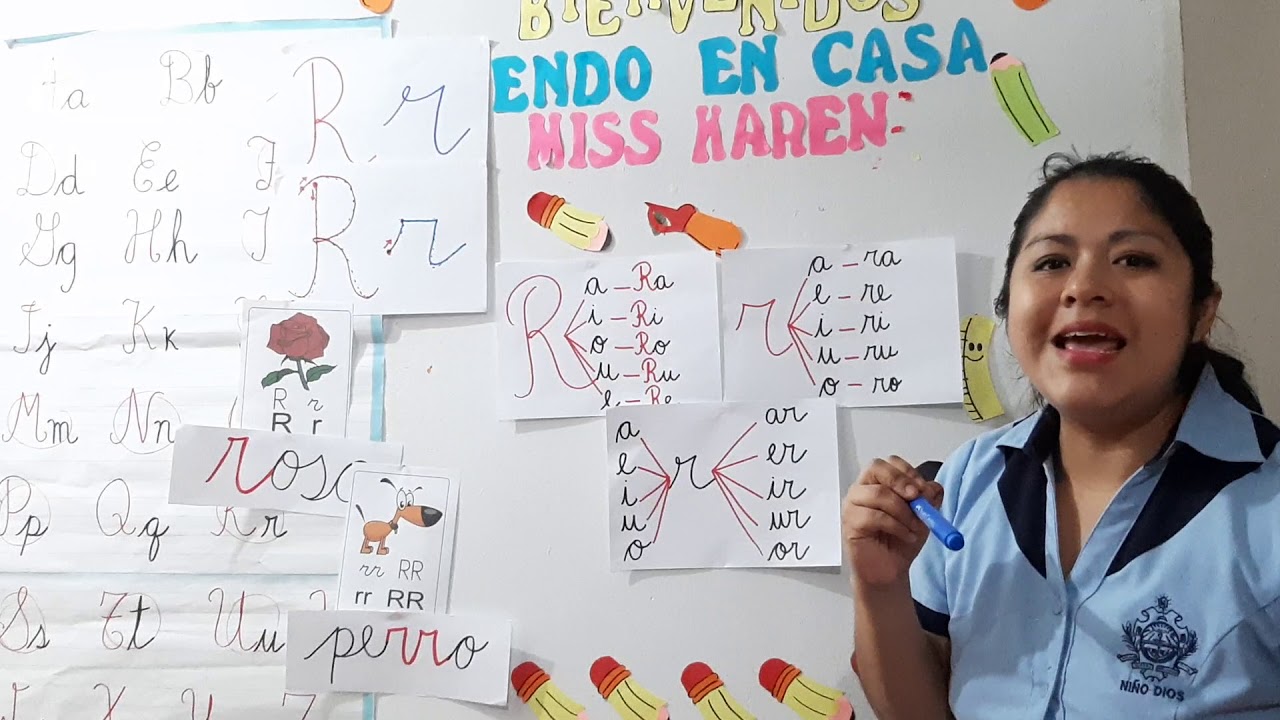 BIENVENIDOS
ENDO EN CASA
MISS KAREN:
a Bb
Dd Ee F
Gg Hh I
Jj Kk
Mm Nn
Pp Qq Rr
Ss Tt Uu
X Y Z
R r
R r
R r
R r
rosa
rr RR
rr RR
perro
R
a – Ra
i – Ri
o – Ro
u – Ru
e – Re
r
a – ra
e – re
i – ri
u – ru
o – ro
a ar
e er
i r ir
u ur
o or
NIÑO DIOS